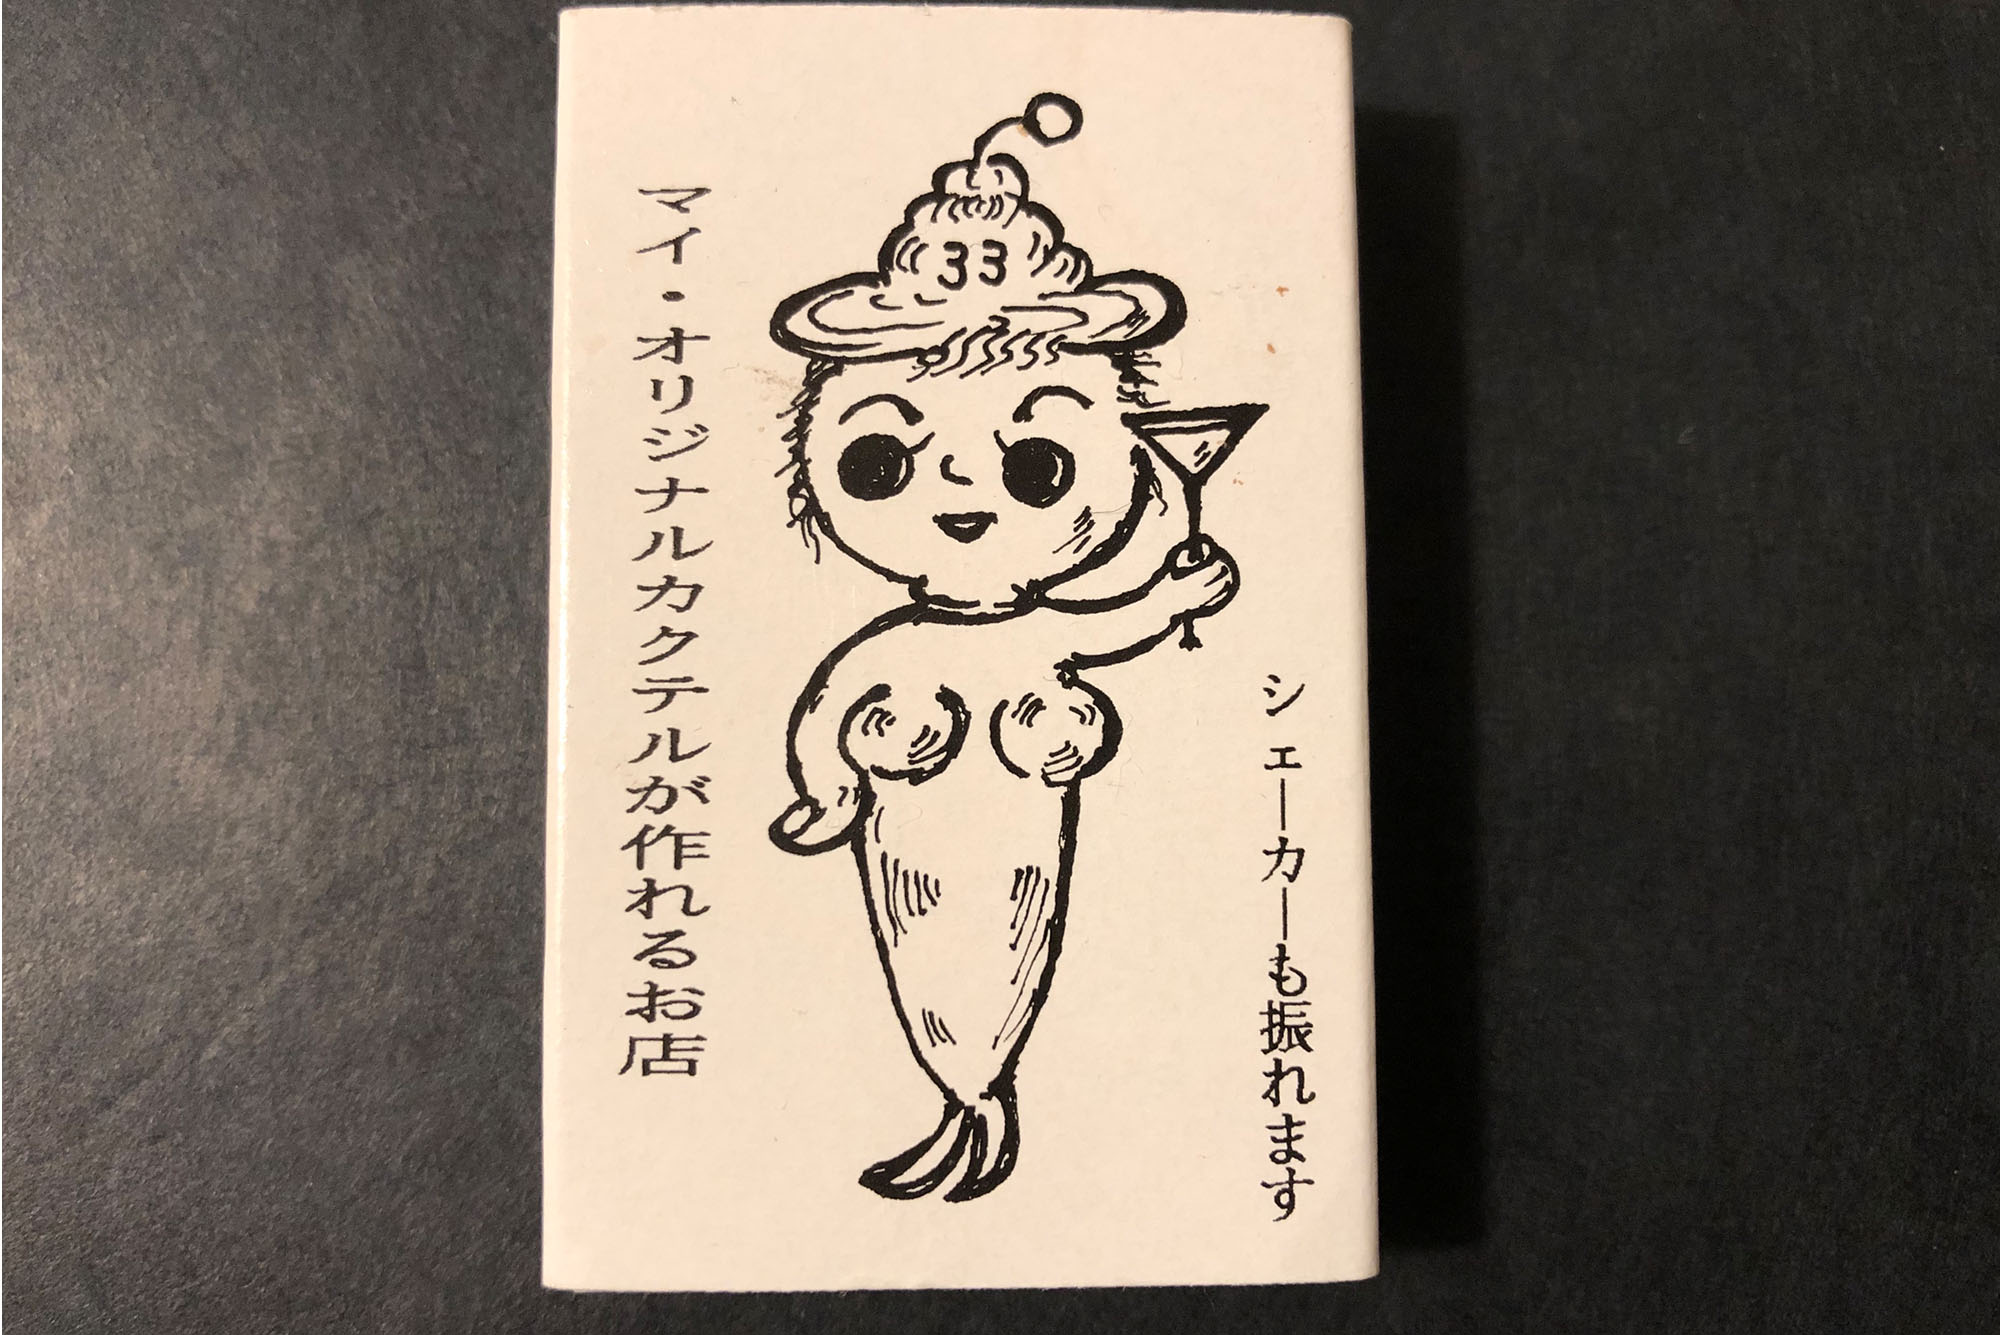 シェーカーも振れます
33
マイ・オリジナルカクテルが作れるお店